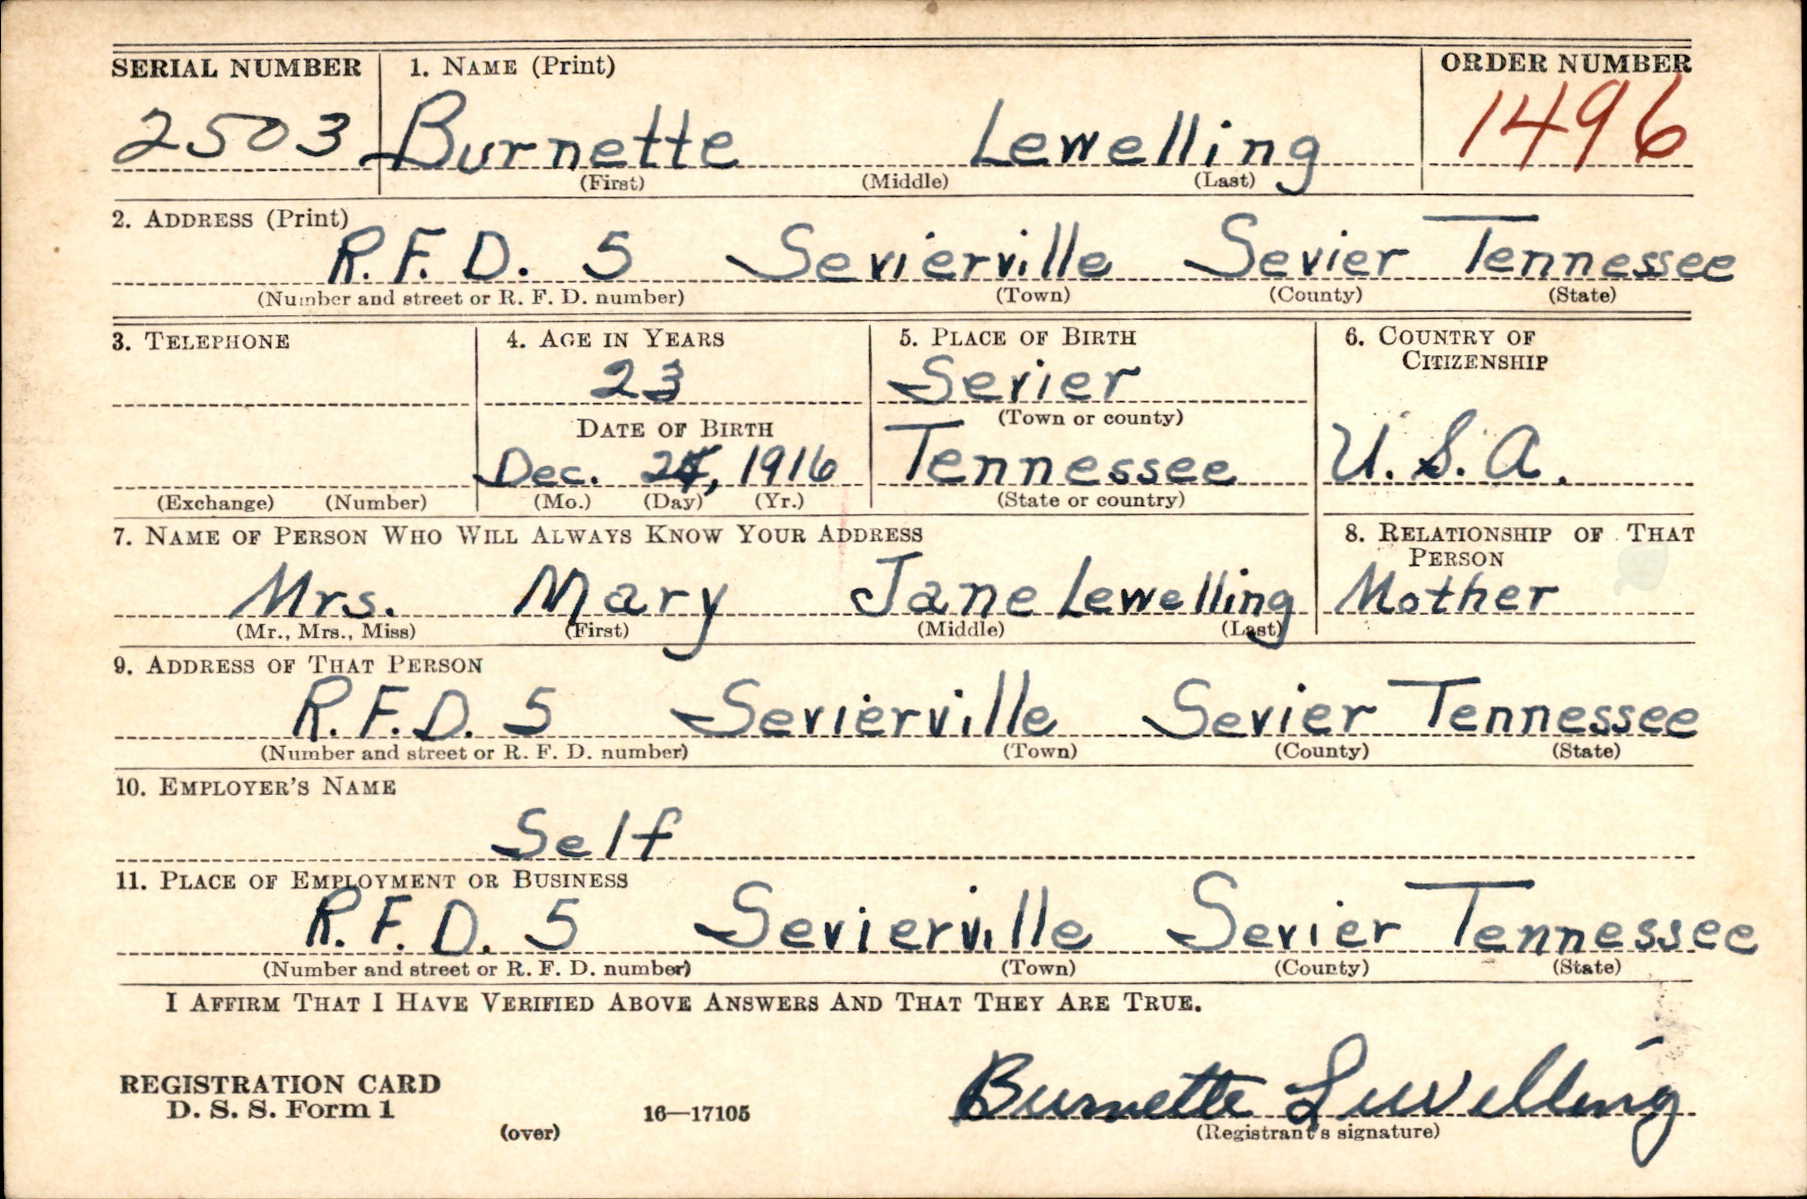 SERIAL NUMBER 1. NAME (Print) ORDER NUMBER
2503 Burnette Lewelling 1496
(First) (Middle) (Last)
2. ADDRESS (Print)
R.F.D. 5 Sevierville Sevier Tennessee
(Number and street or R. F. D. number) (Town) (County) (State)
3. TELEPHONE 4. AGE IN YEARS 5. PLACE OF BIRTH 6. COUNTRY OF
CITIZENSHIP
23 Sevier
(Town or county)
DATE OF BIRTH
Dec. , 1916 Tennessee U.S.A.
(Exchange) (Number) (Mo.) (Day) (Yr.) (State or country)
7. NAME OF PERSON WHO WILL ALWAYS KNOW YOUR ADDRESS 8. RELATIONSHIP OF THAT
PERSON
Mrs. Mary Jane Lewelling Mother
(Mr., Mrs., Miss) (First) (Middle) (Last)
9. ADDRESS OF THAT PERSON
R.F.D. 5 Sevierville Sevier Tennessee
(Number and street or R. F. D. number) (Town) (County) (State)
10. EMPLOYER'S NAME
Self
11. PLACE OF EMPLOYMENT OR BUSINESS
R.F.D. 5 Sevierville Sevier Tennessee
(Number and street or R. F. D. number) (Town) (County) (State)
I AFFIRM THAT I HAVE VERIFIED ABOVE ANSWERS AND THAT THEY ARE TRUE.
REGISTRATION CARD
D. S. S. Form 1 16—17105 Burnette Luvelling
(over) (Registrant's signature)